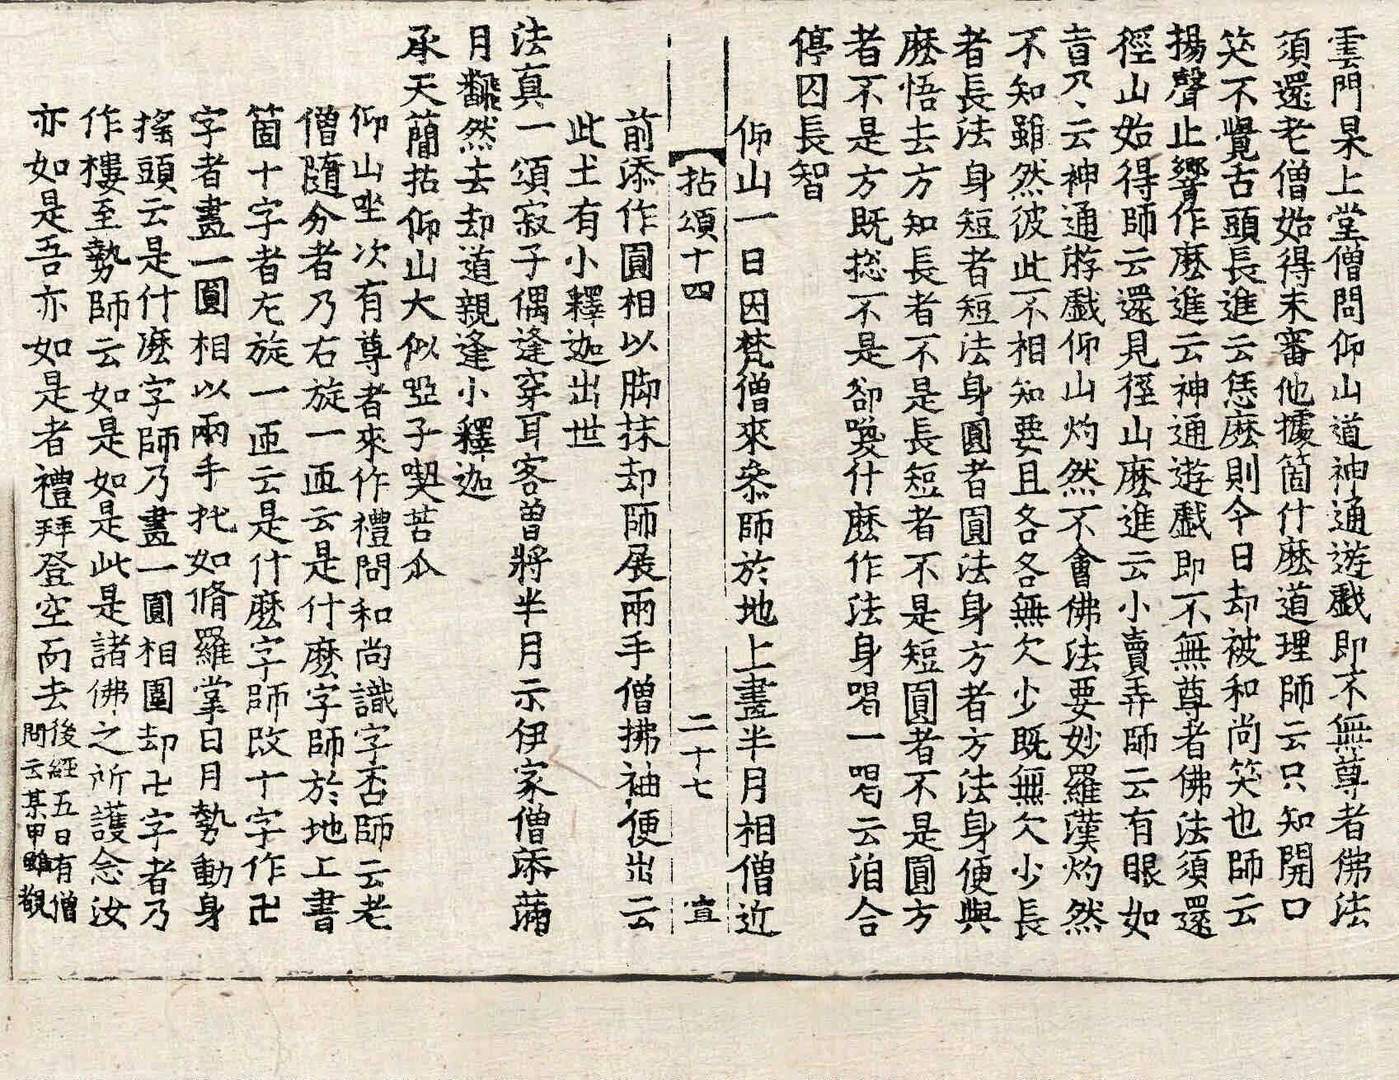 雲門杲上堂僧問仰山道神通遊戲即不無尊者佛法
須還老僧始得未審他據箇什麽道理師云只知開口
笑不覺舌頭長進云恁麽則今日却被和尚笑也師云
揚聲止響作麽進云神通遊戲即不無尊者佛法須還
徑山始得師云還見徑山麽進云小賣弄師云有眼如
盲乃云神通游戲仰山灼然不會佛法要妙羅漢灼然
不知雖然彼此不相知要且各各無欠少既無欠少長
者長法身短者短法身圓者圓法身方者方法身便與
麽悟去方知長者不是長短者不是短圓者不是圓方
者不是方既揔不是卻喚什麽作法身喝一喝云洎合
停囚長智
仰山一日因梵僧來叅師於地上畫半月相僧近
拈頌十四 二十七 宣
前添作圓相以脚抹却師展兩手僧拂袖便出云
此土有小釋迦出世
法真一頌寂子偶逢穿耳客曽將半月示伊家僧添滿
月飜然去却道親逢小釋迦
承天簡拈仰山大似啞子喫苦瓜
仰山坐次有尊者來作禮問和尚識字否師云老
僧隨分者乃右旋一匝云是什麽字師於地上書
箇十字者左旋一匝云是什麽字師改十字作卍
字者畫一圓相以兩手托如脩羅掌日月勢動身
搖頭云是什麽字師乃畫一圓相圍却卍字者乃
作樓至勢師云如是如是此是諸佛之所護念汝
亦如是吾亦如是者禮拜登空而去後經五日有僧
問云某甲雖觀